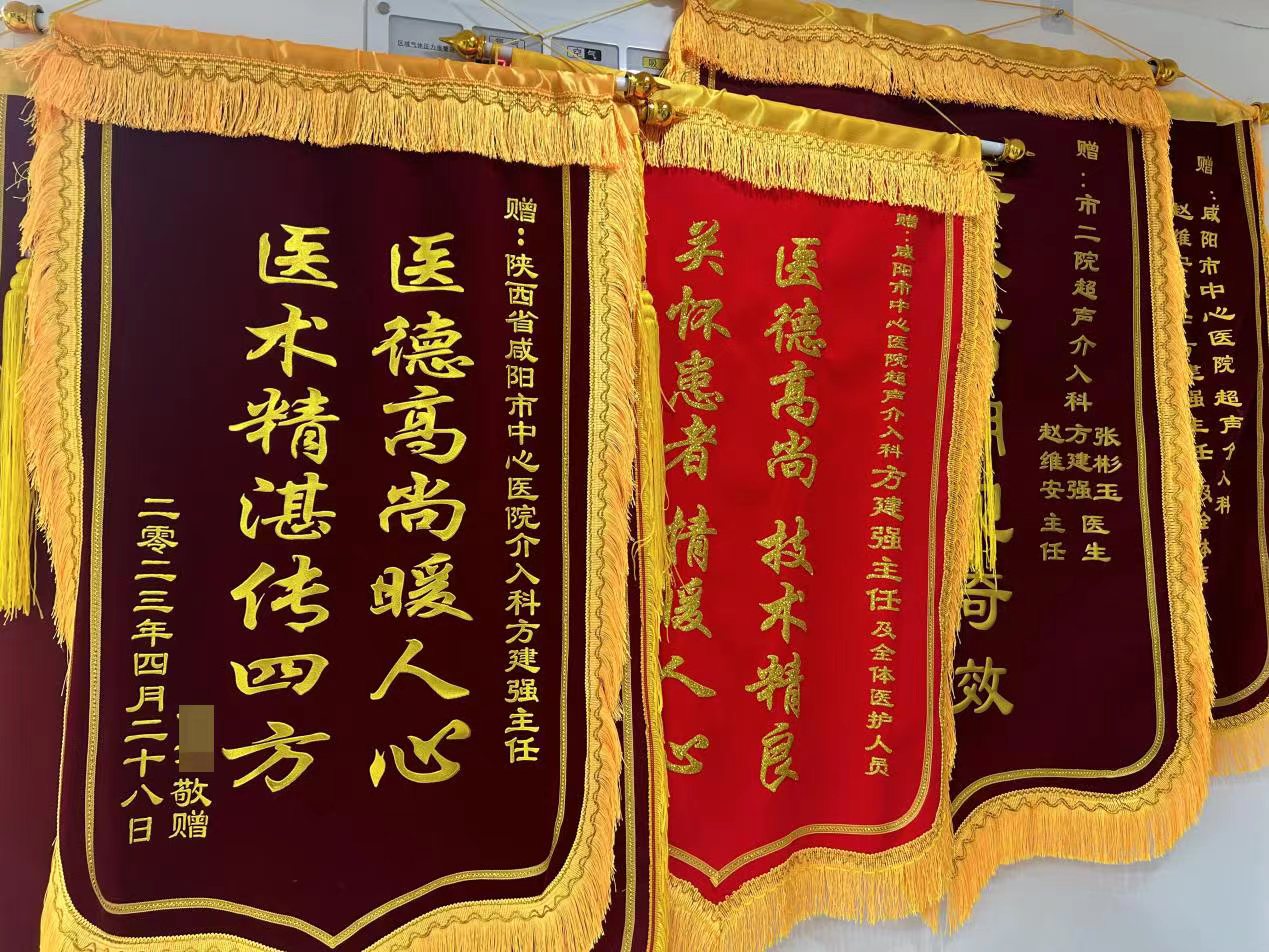 赠：陕西省咸阳市中心医院介入科方建强主任
医德高尚暖人心
医术精湛传四方
敬赠
二零二三年四月二十八日
赠：咸阳市中心医院超声介入科方建强主任及全体医护人员
医德高尚 技术精良
关怀患者 情暖人心
赠：市二院超声介入科
张彬玉医生
方建强
赵维安主任
奇效
赠：咸阳市中心医院超声介入科
赵维
强主任
区域气体压力监
空气